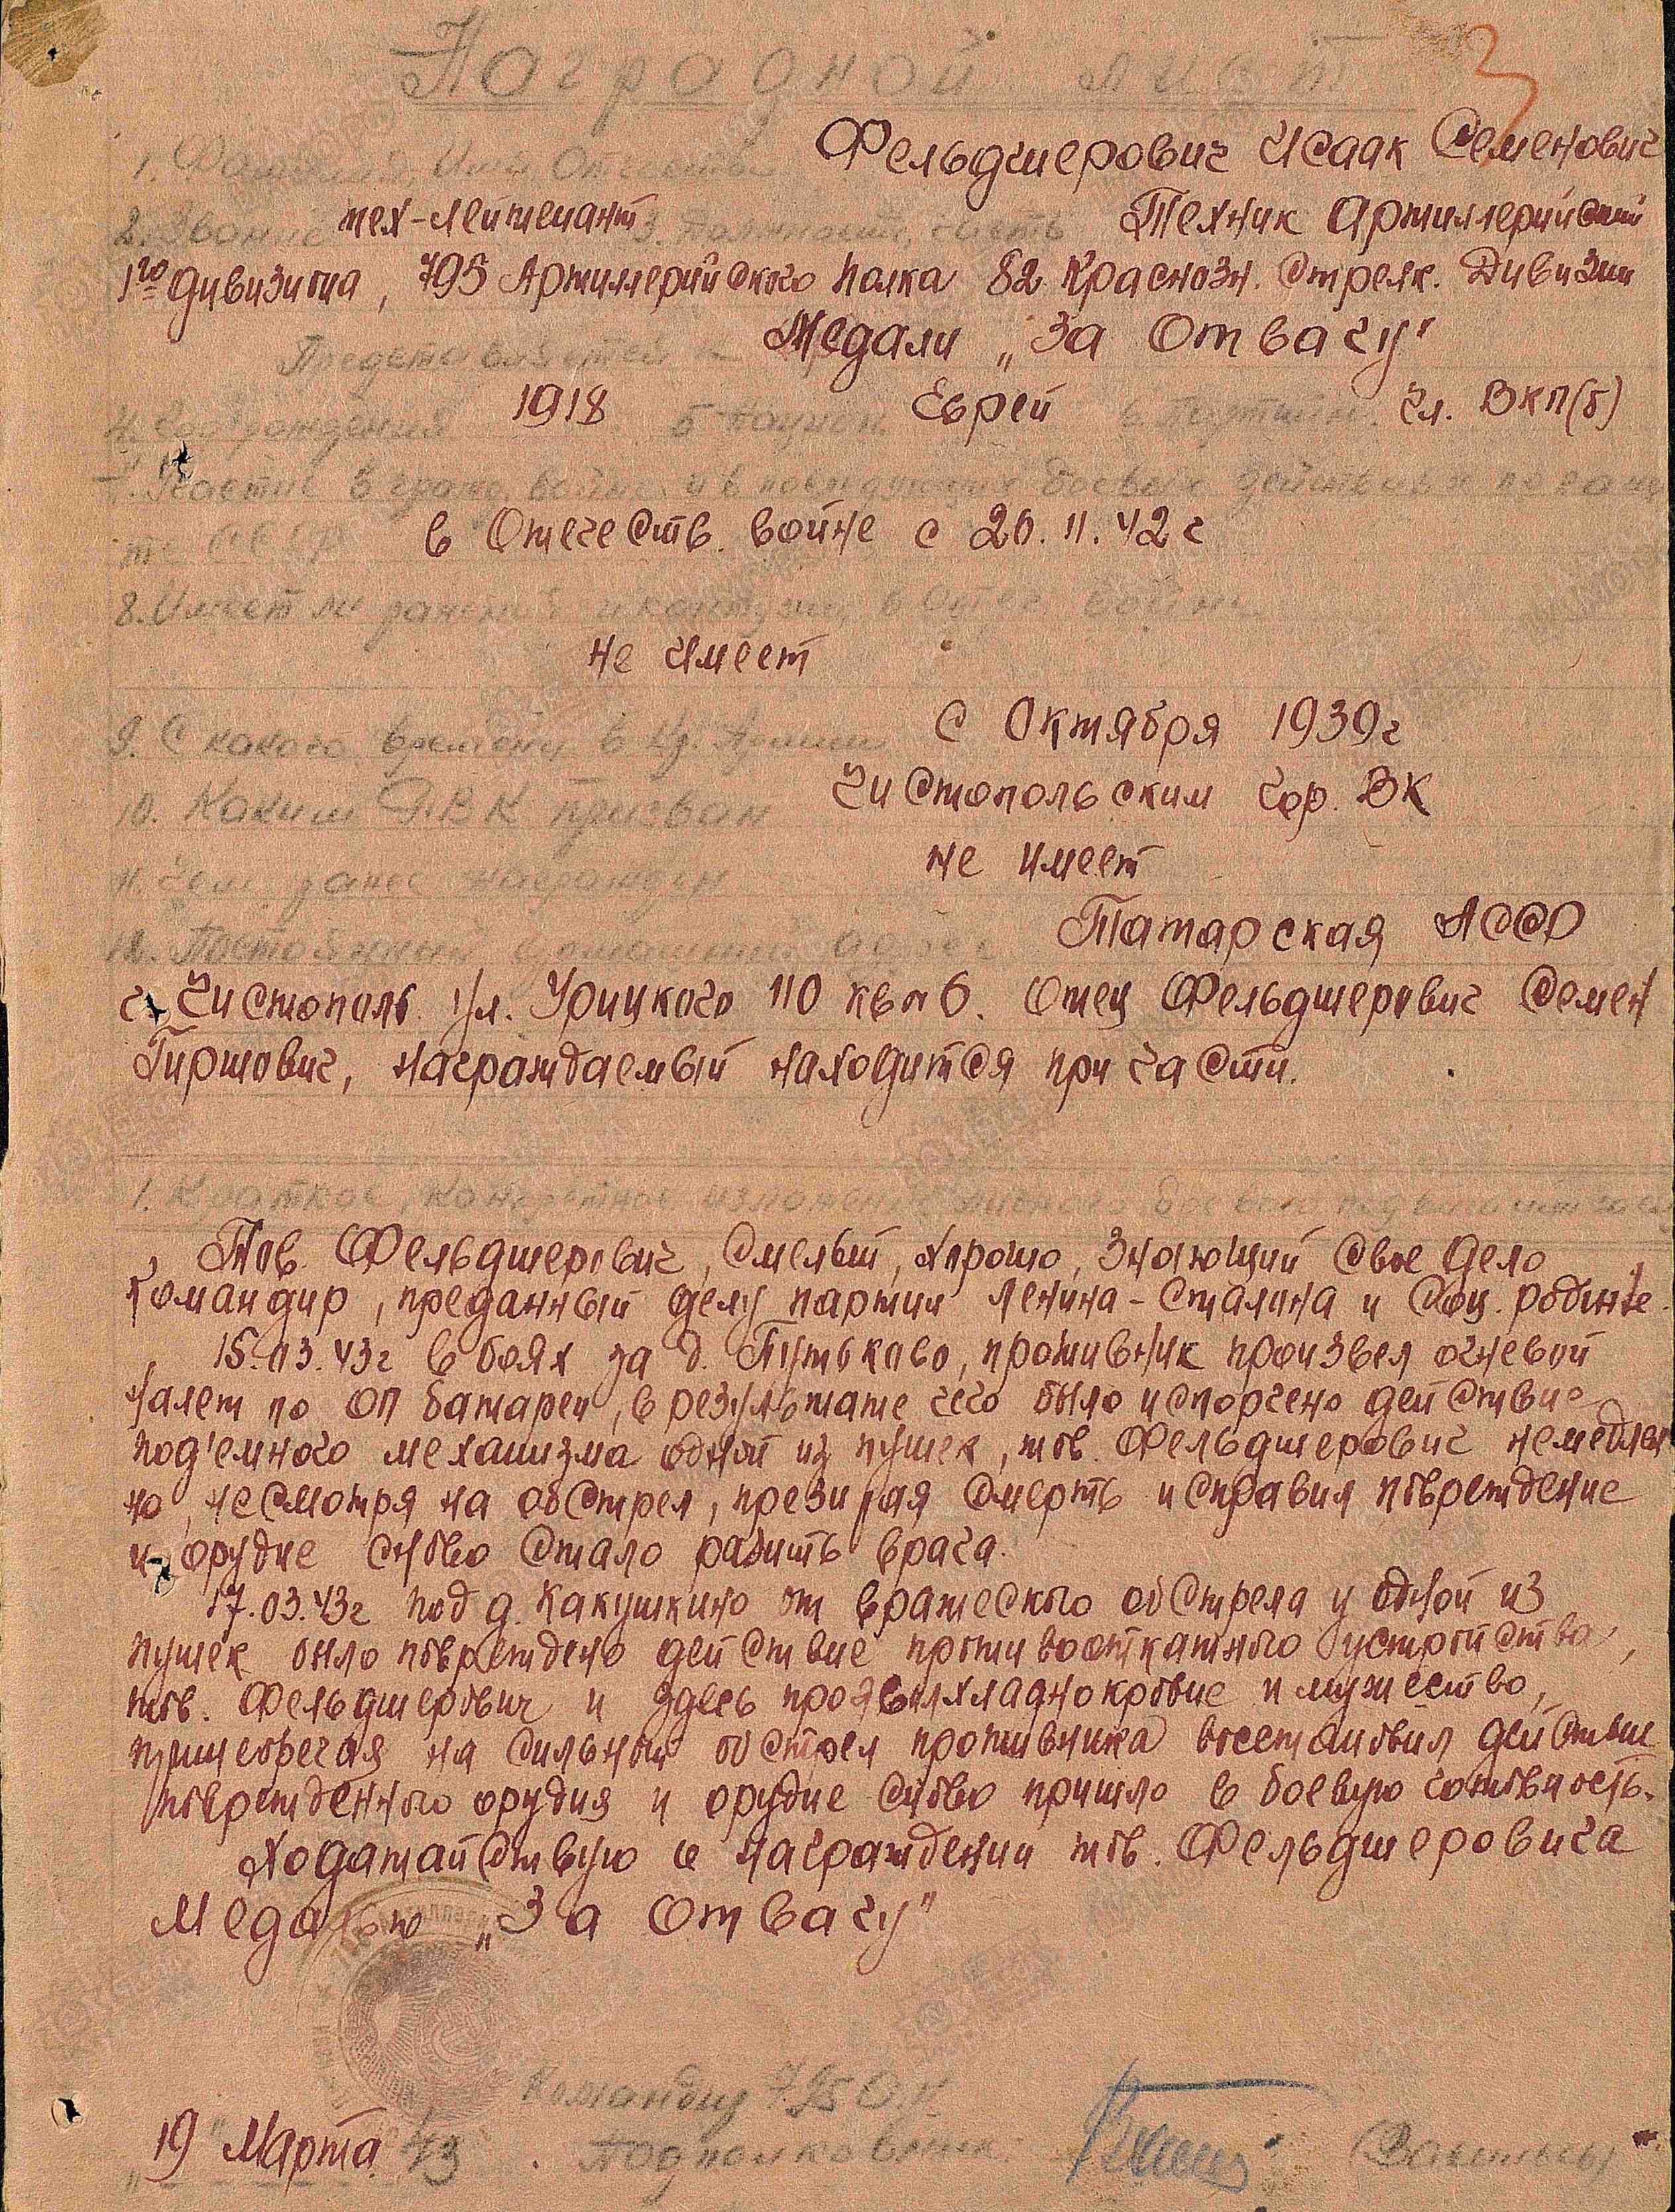 Наградной лист
3
1. Фамилия, Имя, Отчество Фельдшерович Исаак Семенович
2. Звание тех-лейтенант 3. Должность, часть Техник Артиллерийский
1го дивизиона, 795 Артиллерийского полка 82 Краснозн. Стрелк. Дивизии
Представляется к Медали „За Отвагу"
4. Год рождения 1918 5 Национ. Еврей 6. Партийн. Чл. ВКП(б)
7. Участие в гражд. войне и в последующих боевых действиях по защи
те СССР в Отечеств. войне с 20.11.42г
8. Имеет ли ранения и контузии в Отеч. войне
не имеет
9. С какого времени в Кр. Армии с Октября 1939г
10. Каким РВК призван Чистопольским Гор. ВК
11. Чем ранее награжден не имеет
12. Постоянный домашний адрес Татарская АССР
г. Чистополь ул. Урицкого 110 кв №6. Отец Фельдшерович Семен
Гиршович, награждаемый находится при части.
1. Краткое, конкретное изложение личного боевого подвига
Тов. Фельдшерович, смелый, хорошо, знающий свое дело
командир, преданный делу партии Ленина-Сталина и Соц. родине.
15.03.43г в боях за д. Путьково, противник произвел огневой
налет по ОП батареи, в результате чего было испорчено действие
под'емного механизма одной из пушек, тов. Фельдшерович немедлен
но, несмотря на обстрел, презирая смерть исправил повреждение
и орудие снова стало разить врага.
17.03.43г под д. Какушкино от вражеского обстрела у одной из
пушек было повреждено действие противооткатного устройства,
тов. Фельдшерович и здесь проявил хладнокровие и мужество,
принебрегая на сильный обстрел противника восстановил действие
поврежденного орудия и орудие снова пришло в боевую готовность.
Ходатайствую о награждении тов. Фельдшеровича
Медалью „За Отвагу"
Командир 795 А.П.
19 Марта 43 Подполковник